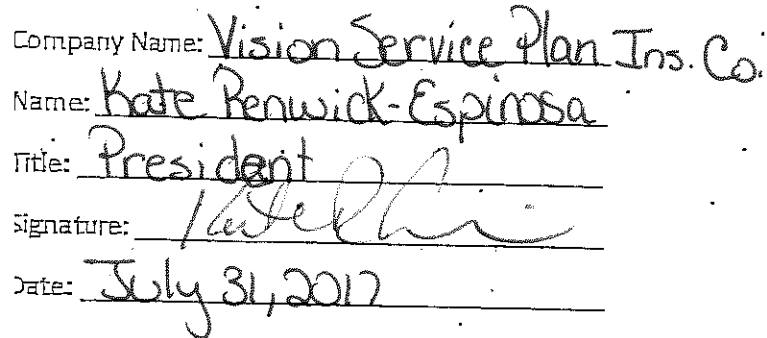 Company Name: Vision Service Plan Ins. Co.
Name: Kate Renwick-Espinosa
Title: President
Signature:
Date: July 31, 2017